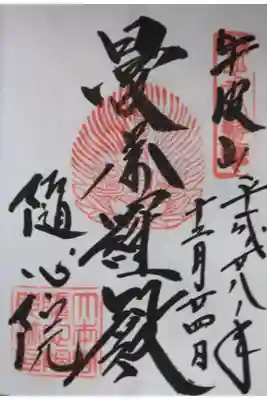 牛皮山
平成廿八年
十二月廿四日
曼荼羅殿
隨心院